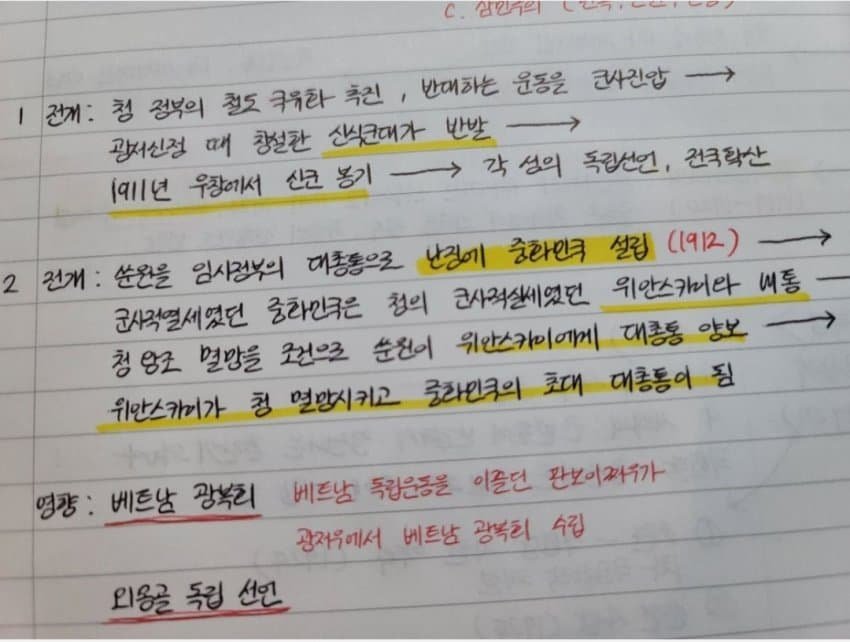 C. 삼민주의 (민족, 민권, 민생)
1 전개: 청 정부의 철도 국유화 추진, 반대하는 운동을 군사진압 →
광저신정 때 창설한 신식군대가 반발 →
1911년 우창에서 신군 봉기 → 각 성의 독립선언, 전국확산
2 전개: 쑨원을 임시정부의 대총통으로 난징에 중화민국 설립 (1912) →
군사적열세였던 중화민국은 청의 군사적실세였던 위안스카이와 내통 →
청 왕조 멸망을 조건으로 쑨원이 위안스카이에게 대총통 양보 →
위안스카이가 청 멸망시키고 중화민국의 초대 대총통이 됨
영향: 베트남 광복회 베트남 독립운동을 이끌던 판보이쩌우가
광저우에서 베트남 광복회 수립
외몽골 독립 선언